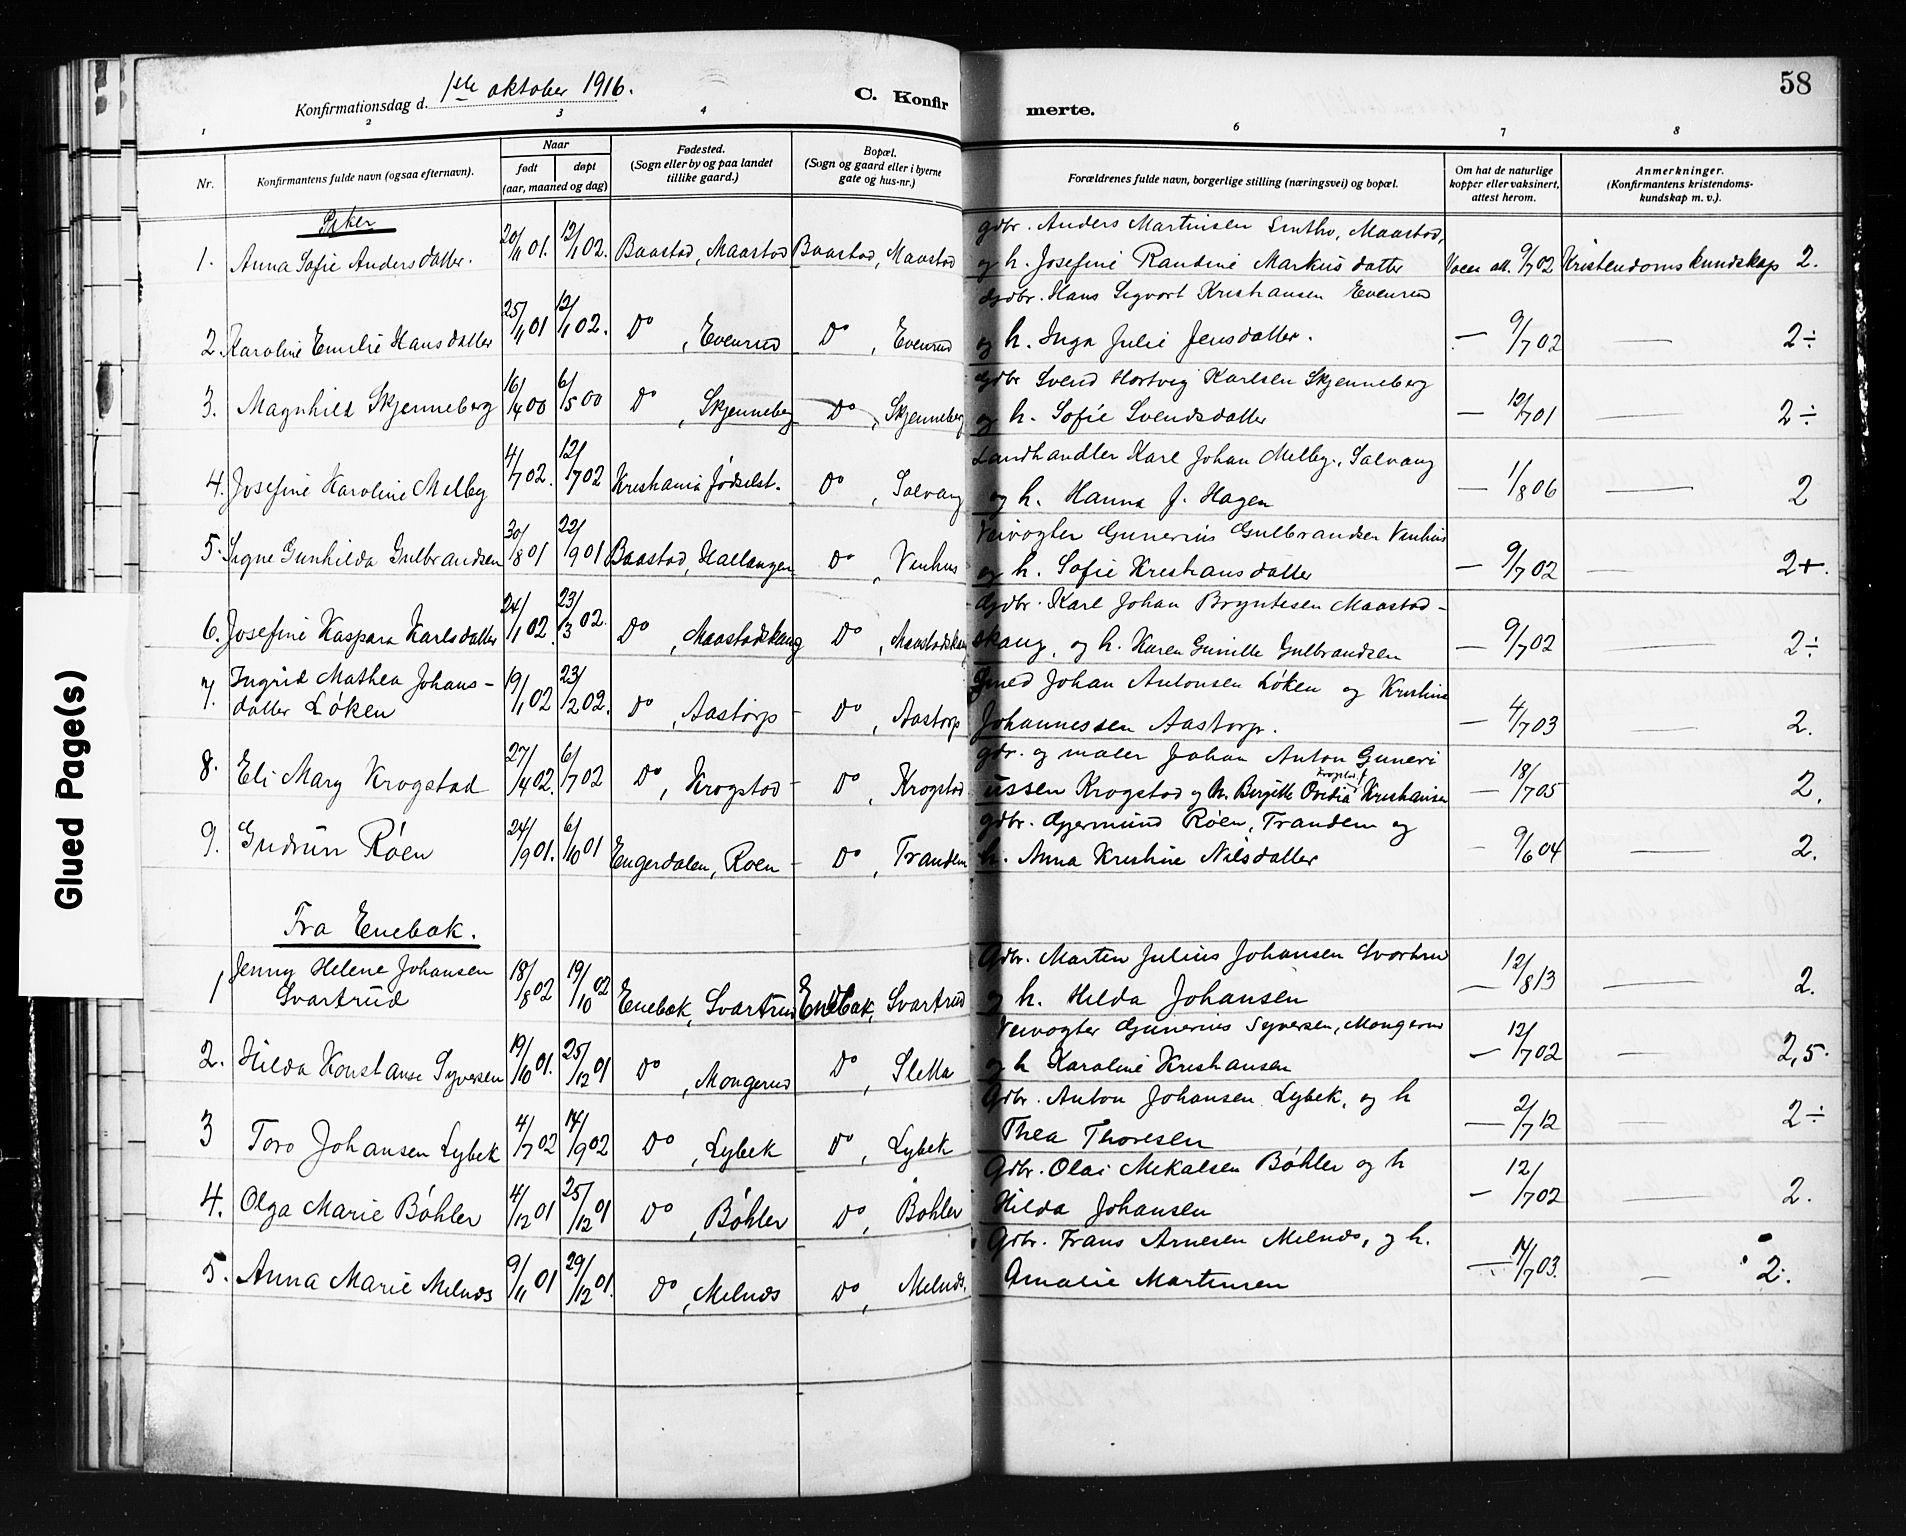 58
Konfirmationsdag d. 1ste oktober 1916.
C. Konfir merte.
1 2 3 4 6 7 8
Nr.
Konfirmantens fulde navn (ogsaa efternavn).
Naar
født døpt
(aar, maaned og dag)
Fødested.
(Sogn eller by og paa landet
tillike gaard.)
Bopæl.
(Sogn og gaard eller i byerne
gate og hus-nr.)
Forældrenes fulde navn, borgerlige stilling (næringsvei) og bopæl.
Om hat de naturlige
kopper eller vaksinert,
attest herom.
Anmerkninger.
(Konfirmantens kristendoms-
kundskap m. v.).
Piker
gdbr. Anders Martinsen Smthv, Maastad,
1. Anna Sofie Andersdatter. 20/11 01. 12/1 02. Baastad, Maastad Baastad, Maastad og h. Josefine Randine Markusdatter Vacc att. 9/7 02 Kristendomskundskap 2.
Gdbr. Hans Sigvart Kristiansen Evenrud
2. Karoline Emilie Hansdatter 25/11 01 12/1 02. Do, Evenrud Do, Evenrud og h. Inga Julie Jensdatter. — 9/7 02 — 2÷
Gdbr Svend Hartvig Karlsen Skjenneberg
3. Magnhild Skjenneberg 16/4 00 6/5 00 Do, Skjenneberg Do, Skjenneberg og h. Sofie Svendsdatter — 12/7 01 — 2÷
Landhandler Karl Johan Melby, Solvang
4. Josefine Karoline Melby 4/7 02. 12/7 02 Kristiania fødselst. Do, Solvang og h. Hanna J. Hagen — 1/8 06 — 2
Veivogter Gunerius Gulbrandsen Venhus
5. Signe Gunhilda Gulbrandsen 30/8 01 22/9 01 Baastad, Hallangen Do, Venhus og h. Sofie Kristiansdatter — 9/7 02 — 2+.
Gdbr. Karl Johan Bryntesen Maastad-
6. Josefine Kaspara Karlsdatter 24/1 02 23/3 02. Do, Maastadskaug Do, Maastadskaug skaug, og h. Karen Gunille Gulbrandsen — 9/7 02 — 2÷
7. Ingrid Mathea Johans-
datter Løken 19/1 02 23/2 02. Do, Aastorp Do, Aastorp Smed Johan Antonsen Løken og Kristine
Johannessen Aastorp. — 4/7 03 — 2.
gdr. og maler Johan Anton Guneri
8. Eli Mary Krogstad 27/4 02. 6/7 02 Do, Krogstad Do, Krogstad ussen Krogstad og h. Birgitte Ovidia Kristiansen — 18/7 05 — 2.
gdbr. Gjermund Røen, Trandem og
9. Gudrun Røen 24/9 01. 6/10 01 Engerdalen, Roen Do, Trandem h. Anna Kristine Nilsdatter - 9/6 04 — 2.
Fra Enebak.
1 Jenny Helene Johansen
Svartrud 18/8 02 19/10 02 Enebak, Svartrud Enebak, Svartrud Gdbr. Marten Julius Johansen Svartrud
og h. Hilda Johansen — 12/8 13 — 2.
Veivogter Gunerius Syversen, Mongerud
2. Hilda Konstanse Syversen 19/10 01. 25/12 01 Do, Mongerud Do, Sletta og h Karoline Kristiansen — 12/7 02 — 2,5.
Gdbr. Anton Johansen Lybek, og h
3 Toro Johansen Lybek 4/7 02 14/9 02 Do, Lybek Do, Lybek Thea Thoresen — 2/7 12 — 2÷
Gdbr. Olai Mikalsen Bøhler og h
4. Olga Marie Bøhler 4/12 01 25/12 01 Do, Bøhler Do, Bøhler Hilda Johansen — 12/7 02 — 2.
Gdbr. Frans Arnesen Melnæs, og h.
5. Anna Marie Melnæs 9/11 01 29/12 01. Do, Melnæs Do, Melnæs. Amalie Martinsen — 14/7 03. — 2.
Glued Page(s)